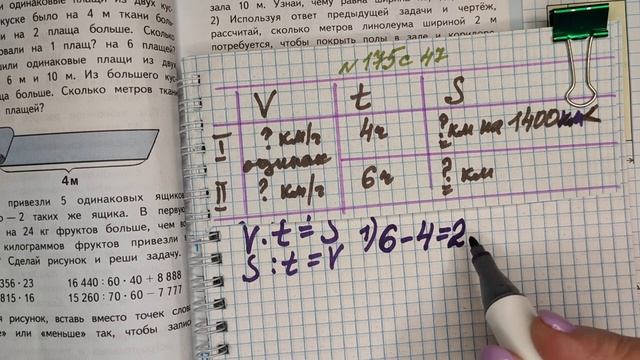 одинаковые плащи из двух кус-
куске было на 4 м ткани боль-
на 2 плаща больше. Сколько
на 1 плащ? на 6 плащей?
одинаковые плащи из двух
6 м и 10 м. Из большего кус-
больше. Сколько метров ткани
плащей?
4 м
привезли 5 одинаковых ящиков
2 таких же ящика. В первую
на 24 кг фруктов больше, чем во
килограммов фруктов привезли в
Сделай рисунок и реши задачу.
356 · 23 16 440 : 60 · 40 + 8 888
815 · 16 15 260 : 70 · 60 − 7 777
рисунок, вставь вместо точек слова
или «меньше» так, чтобы
зала 10 м. Узнай, чему равна ширина
2) Используя ответ предыдущей задачи и чертёж,
рассчитай, сколько метров линолеума шириной 2 м
потребуется, чтобы покрыть полы в зале и коридоре
N 175 с 47
V t S
I ? км/ч 4ч ? км на 1400км <
одинак
II ? км/ч 6ч ? км
V · t = S 1) 6 - 4 = 2
S : t = V